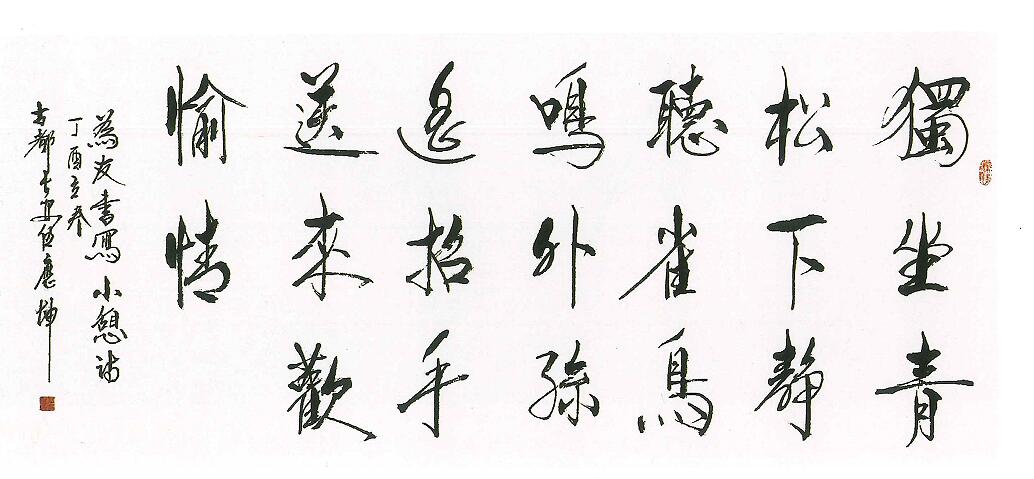 獨坐青
松下靜
聽雀鳥
鳴外孫
遙招手
送來歡
愉情
為友書寫小憩詩
丁酉立春
古都長安應坤